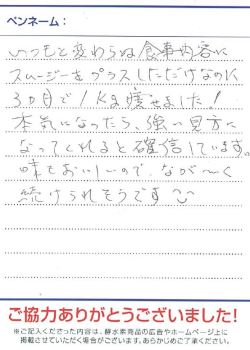 ペンネーム：
いつもと変わらぬ食事内容に
スムージーをプラスしただけなのに
3ヵ月で1Kg痩せました！
本気になったら、強い見方に
なってくれると確信しています。
味もおいしいので、なが〜く
続けられそうです
ご協力ありがとうございました!
※ご記入くださった内容は、酵水素商品の広告やホームページ上に
掲載させていただく場合がございます。あらかじめご了承ください。